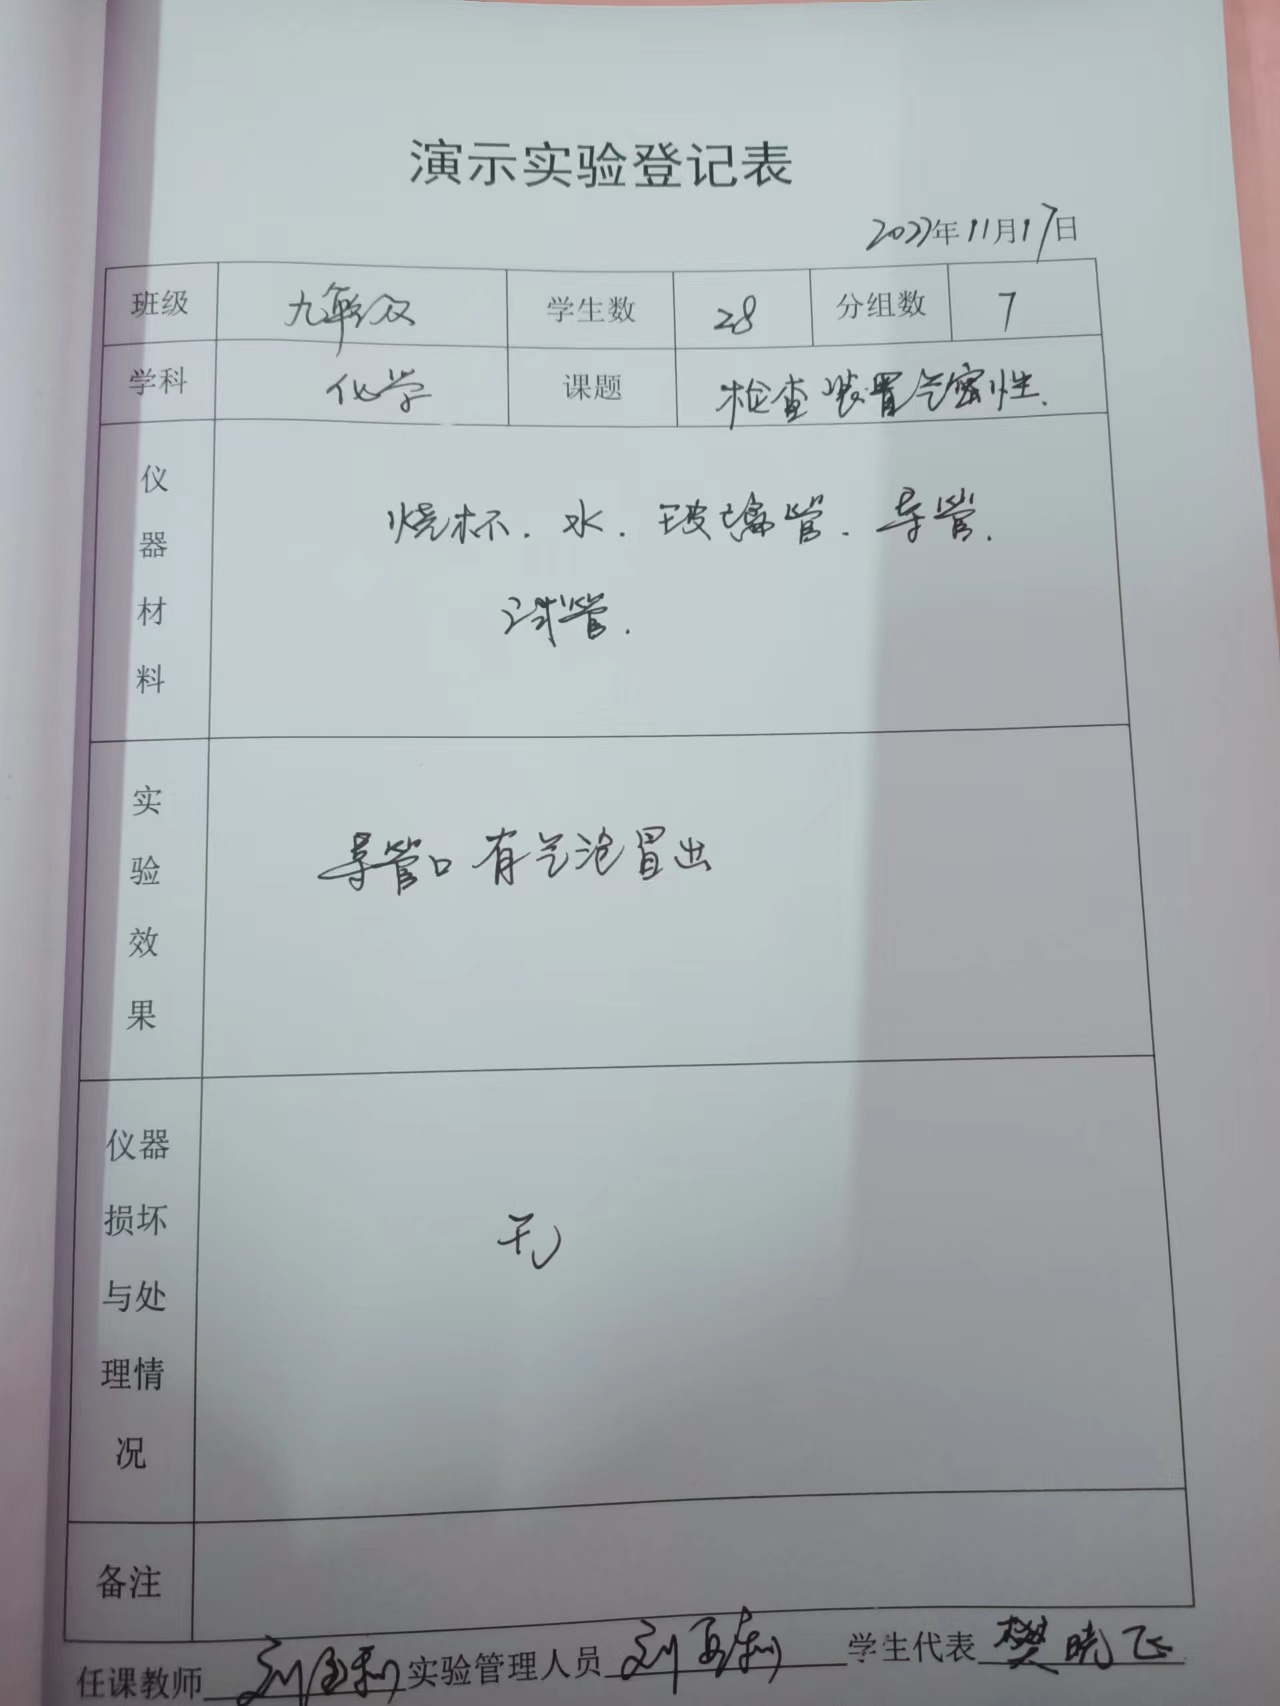 演示实验登记表
2022年11月17日
班级 九年级 学生数 28 分组数 7
学科 化学 课题 检查装置气密性.
仪器材料 烧杯. 水. 玻璃管. 导管.
试管.
实验效果 导管口有气泡冒出
仪器损坏与处理情况 无
备注
任课教师 实验管理人员 学生代表 樊晓飞